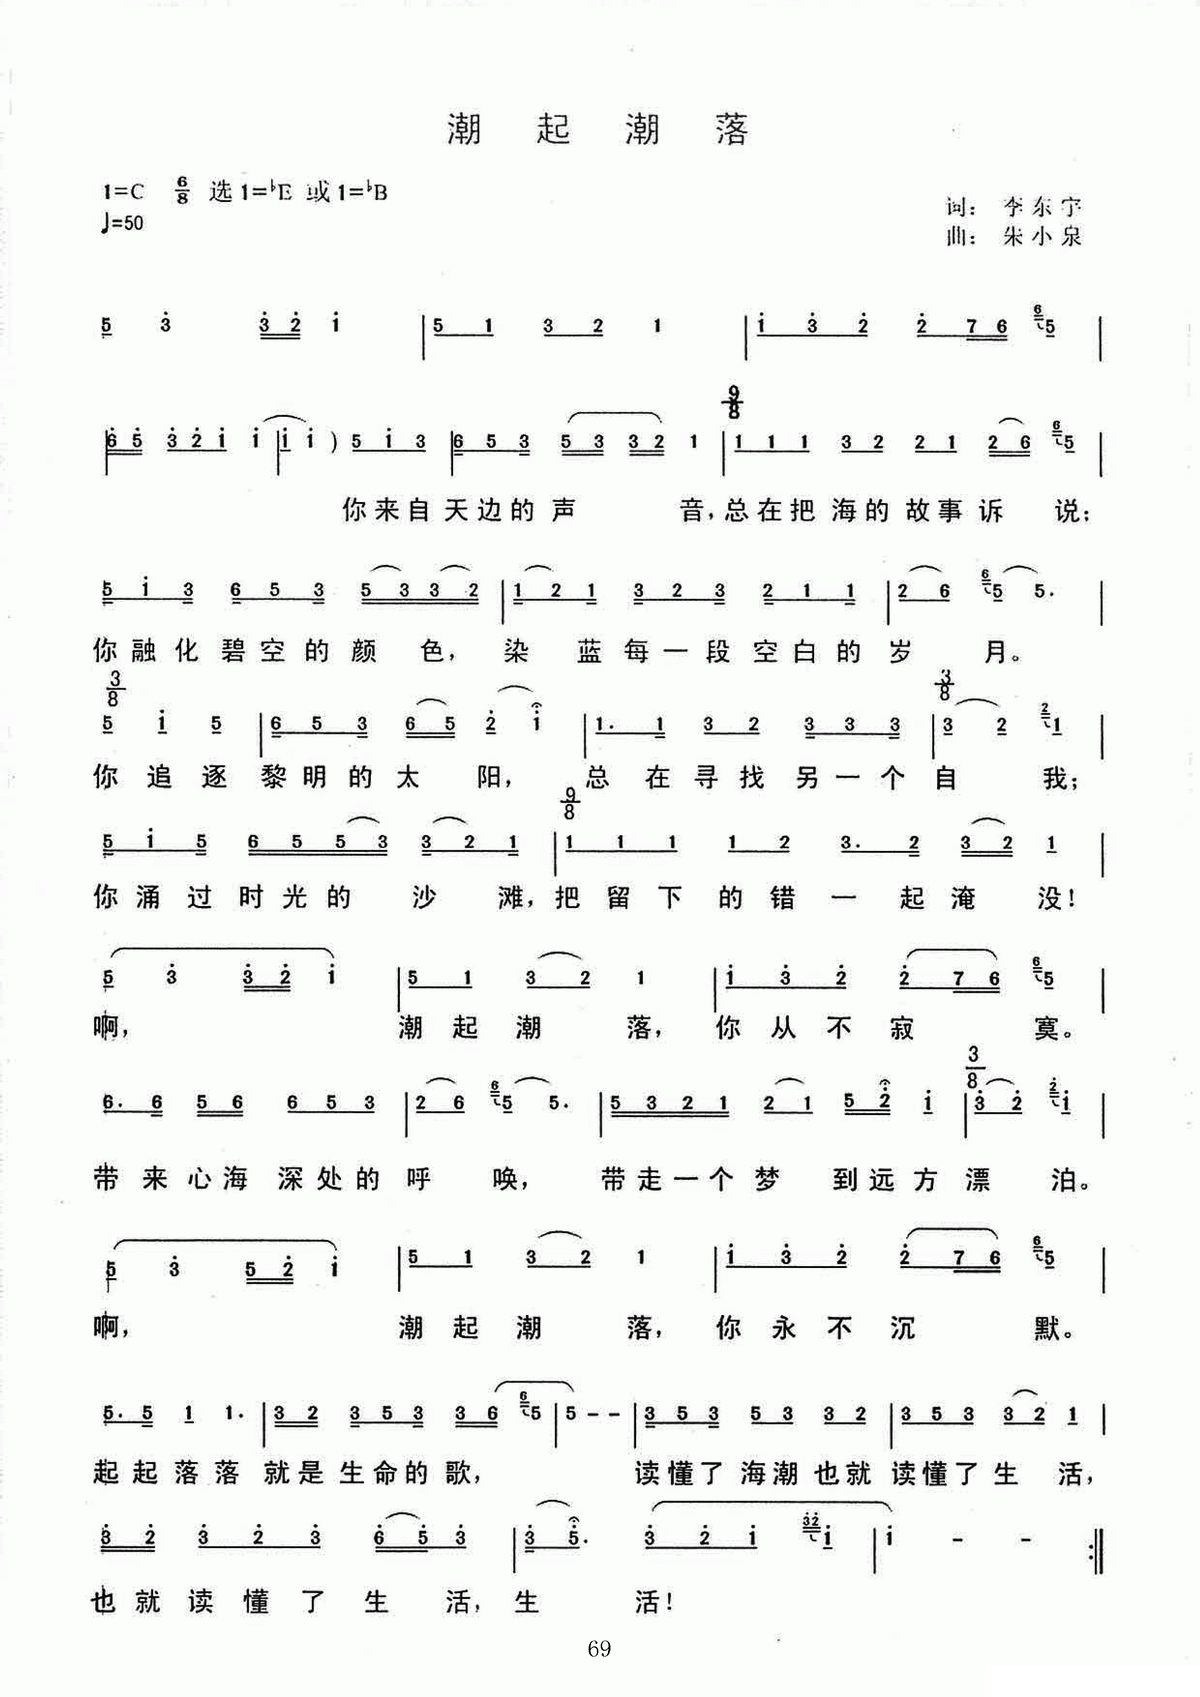 潮起潮落
1=C 6/8 选1=♭E 或1=♭B
♩=50
词：李东宁
曲：朱小泉
5 3 3 2 1 | 5 1 3 2 1 | 1 3 2 2 7 6 6 5 |
6 5 3 2 1 1 | 1 1 ) 5 1 3 | 6 5 3 5 3 3 2 1 | 9/8 1 1 1 3 2 2 1 2 6 6 5 |
你来自天边的声 音，总在把海的故事诉 说；
5 1 3 6 5 3 5 3 3 2 | 1 2 1 3 2 3 2 1 1 | 2 6 6 5 5. |
你融化碧空的颜 色，染 蓝每一段空白的岁 月。
3/8 5 1 5 | 6 5 3 6 5 2 1 | 1. 1 3 2 3 3 3 | 3/8 3 2 2 1 |
你追逐黎明的太 阳，总在寻找另一个自 我；
5 1 5 6 5 5 3 3 2 1 | 9/8 1 1 1 1 2 3. 2 3 2 1 |
你涌过时光的 沙 滩，把留下的错一起淹 没！
5 3 3 2 1 | 5 1 3 2 1 | 1 3 2 2 7 6 6 5 |
啊， 潮起潮 落，你从不寂 寞。
6. 6 5 6 6 5 3 | 2 6 6 5 5. | 5 3 2 1 2 1 5 2 1 | 3/8 3 2 2 1 |
带来心海深处的呼 唤，带走一个梦 到远方漂 泊。
5 3 5 2 1 | 5 1 3 2 1 | 1 3 2 2 7 6 6 5 |
啊， 潮起潮 落，你永不沉 默。
5. 5 1 1. | 3 2 3 5 3 3 6 6 5 | 5 - - | 3 5 3 5 5 3 2 | 3 5 3 3 2 1 |
起起落落就是生命的歌， 读懂了海潮也就读懂了生 活，
3 2 2 3 2 6 5 3 | 3 5. 3 2 1 3 2 1 | 1 - - :||
也就读懂了生 活，生 活！
69